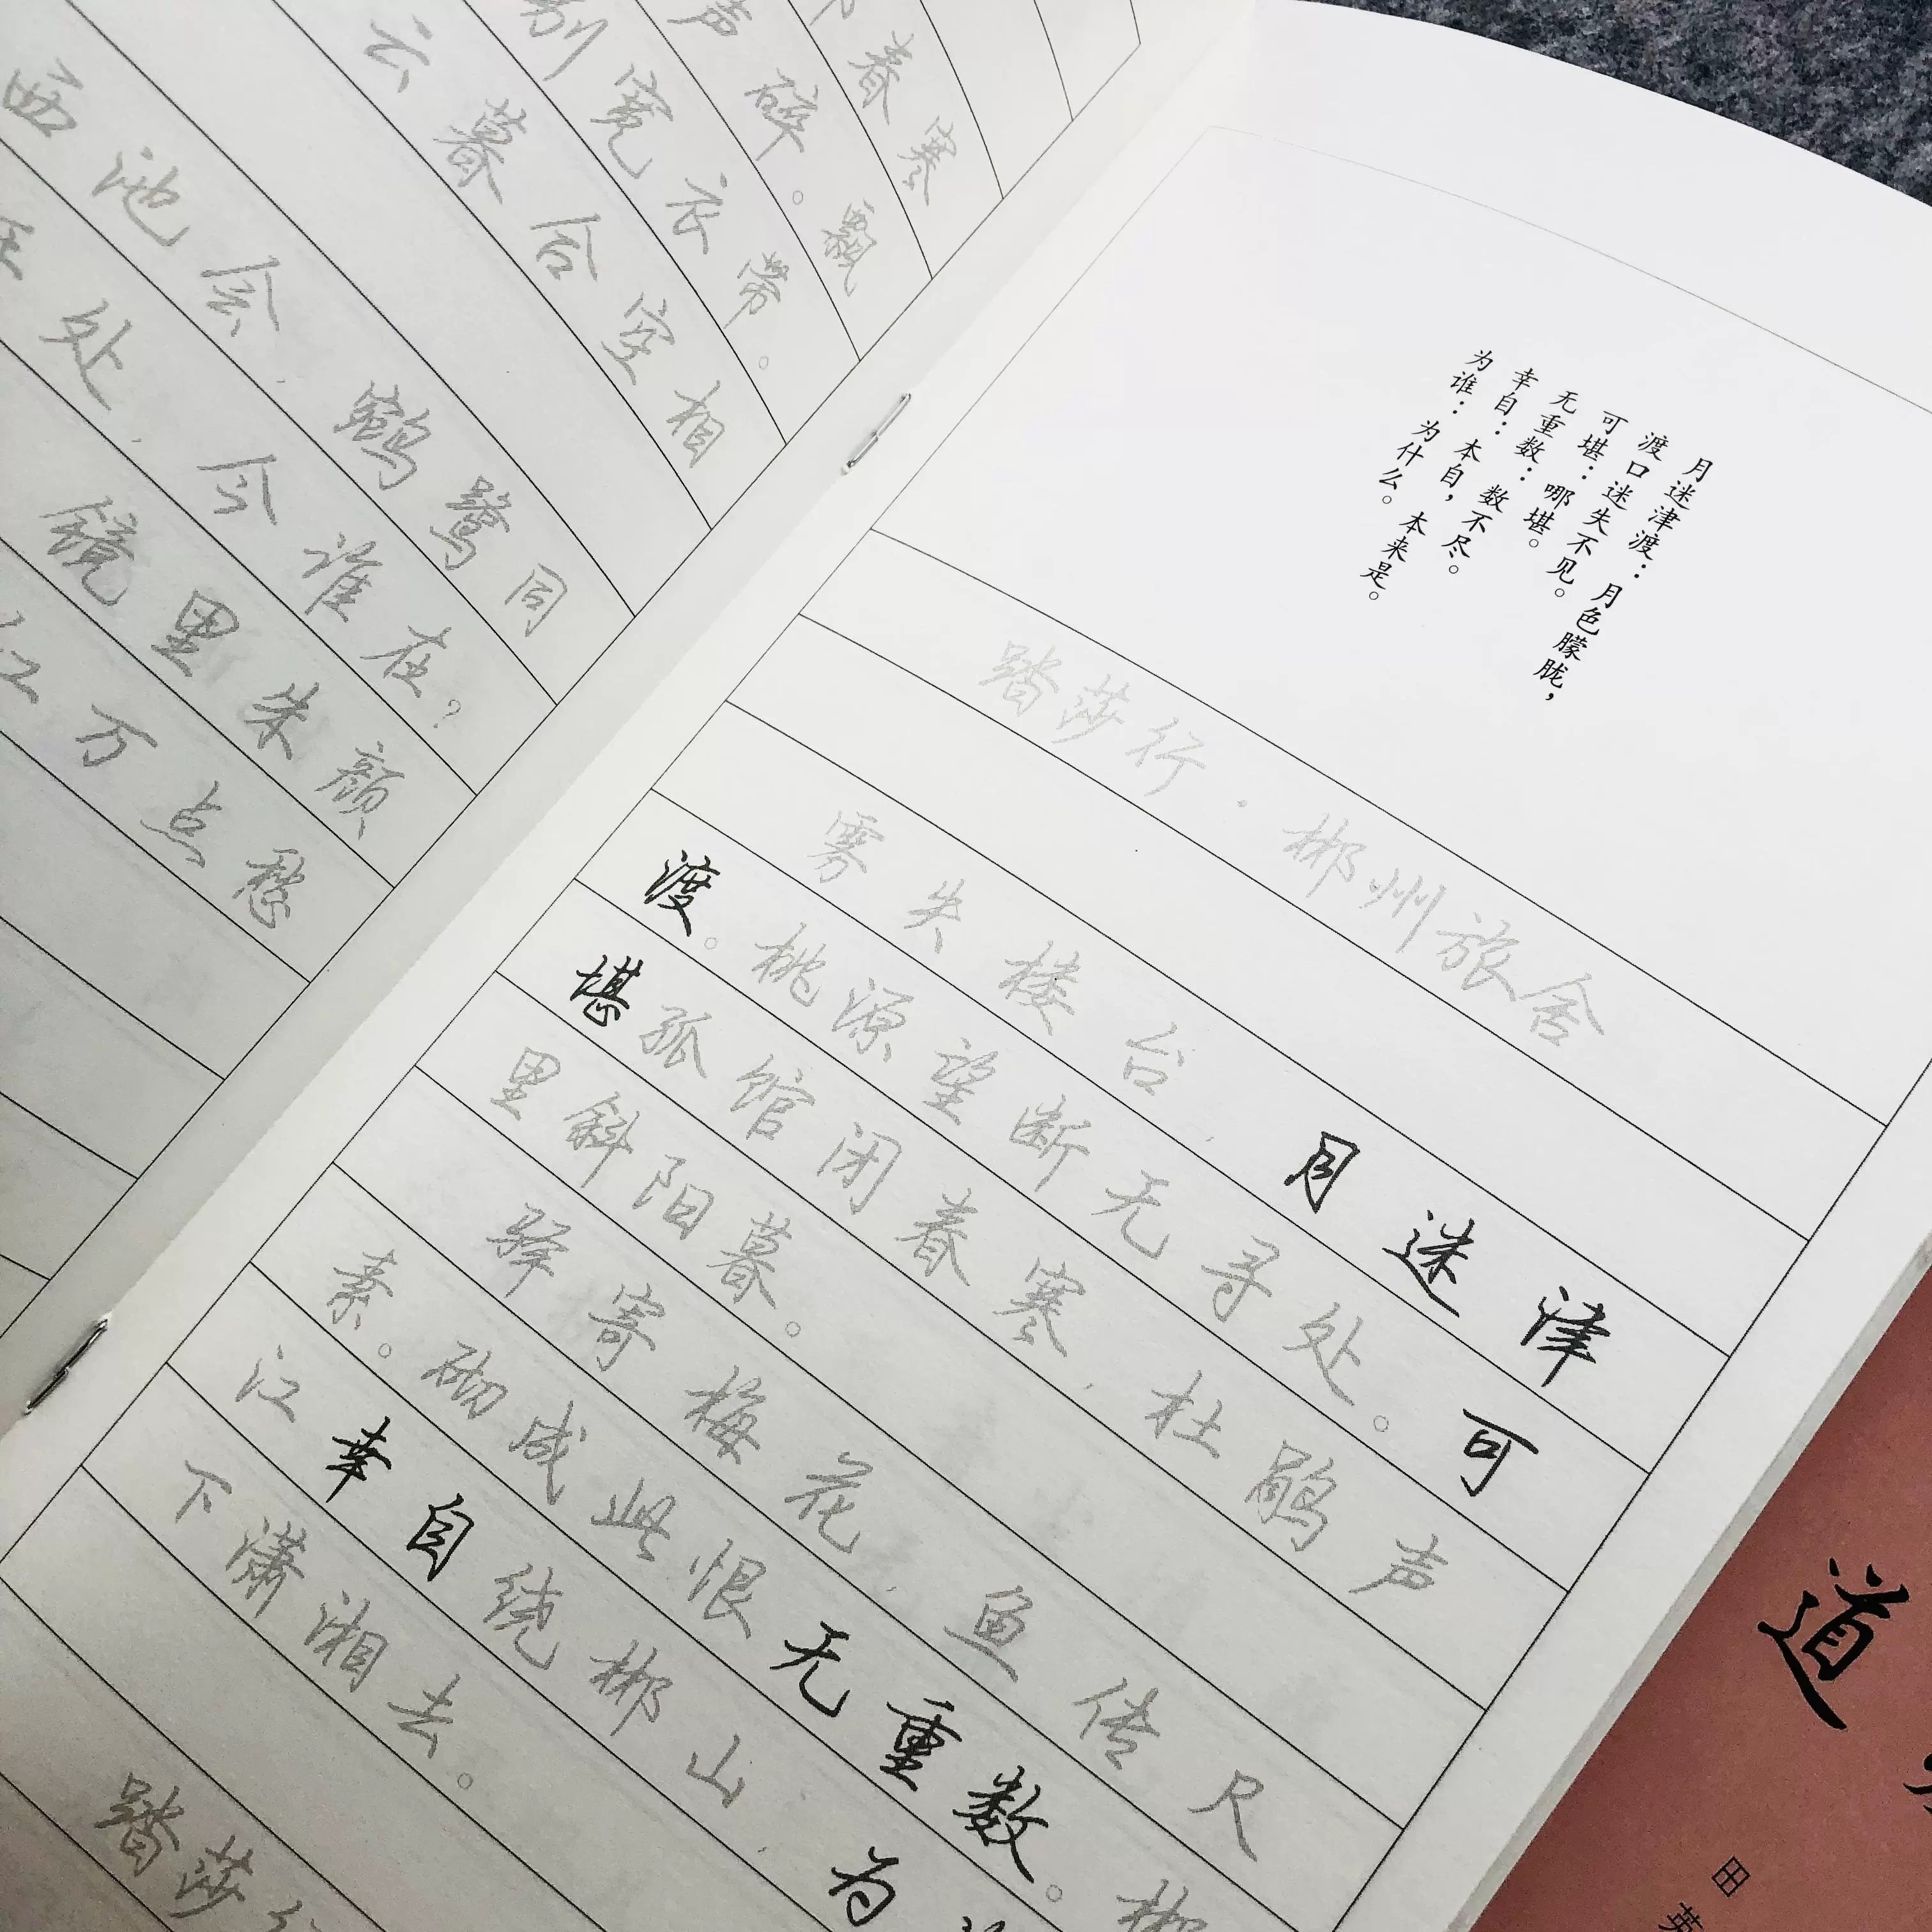 春寒
声碎。飘
别宽衣带。
云暮合空相
西池会，鹓鹭同
处，今谁在？
镜里朱颜
红万点愁
月迷津渡：月色朦胧，
渡口迷失不见。
可堪：哪堪。
无重数：数不尽。
幸自：本自，本来是。
为谁：为什么。
踏莎行·郴州旅舍
雾失楼台，月迷津
渡。桃源望断无寻处。可
堪孤馆闭春寒，杜鹃声
里斜阳暮。
驿寄梅花，鱼传尺
素。砌成此恨无重数。郴
江幸自绕郴山，为
下潇湘去。
踏莎行
道
田英